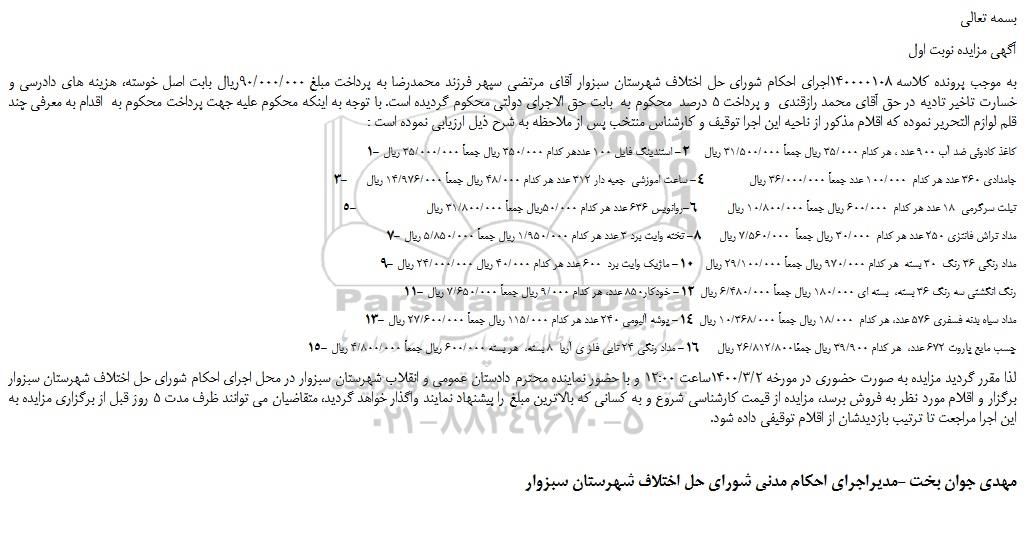 بسمه تعالی
آگهی مزایده نوبت اول
به موجب پرونده کلاسه ۱۴۰۰۰۰۱۰۸اجرای احکام شورای حل اختلاف شهرستان سبزوار آقای مرتضی سپهر فرزند محمدرضا به پرداخت مبلغ ۹۰/۰۰۰/۰۰۰ریال بابت اصل خوسته، هزینه های دادرسی و
خسارت تاخیر تادیه در حق آقای محمد رازقندی و پرداخت ۵ درصد محکوم به بابت حق الاجرای دولتی محکوم گردیده است. با توجه به اینکه محکوم علیه جهت پرداخت محکوم به اقدام به معرفی چند
قلم لوازم التحریر نموده که اقلام مذکور از ناحیه این اجرا توقیف و کارشناس منتخب پس از ملاحظه به شرح ذیل ارزیابی نموده است :
کاغذ کادوئی ضد آب ۹۰۰ عدد ، هر کدام ۳۵/۰۰۰ ریال جمعاً ۳۱/۵۰۰/۰۰۰ ریال ۲- استندینگ فایل ۱۰۰ عددهر کدام ۳۵۰/۰۰۰ ریال جمعاً ۳۵/۰۰۰/۰۰۰ ریال –۱
جامدادی ۳۶۰ عدد هر کدام ۱۰۰/۰۰۰ عدد جمعاً ۳۶/۰۰۰/۰۰۰ ریال ۴- ساعت آموزشی جعبه دار ۳۱۲ عدد هر کدام ۴۸/۰۰۰ ریال جمعاً ۱۴/۹۷۶/۰۰۰ ریال –۳
تبلت سرگرمی ۱۸ عدد هر کدام ۶۰۰/۰۰۰ ریال جمعاً ۱۰/۸۰۰/۰۰۰ ریال ۶-روانویس ۶۳۶ عدد هر کدام ۵۰/۰۰۰ریال جمعاً ۳۱/۸۰۰/۰۰۰ ریال –۵
مداد تراش فانتزی ۲۵۰ عدد هر کدام ۳۰/۰۰۰ ریال جمعاً ۷/۵۶۰/۰۰۰ ریال ۸- تخته وایت برد ۳ عدد هر کدام ۱/۹۵۰/۰۰۰ ریال جمعاً ۵/۸۵۰/۰۰۰ ریال –۷
مداد رنگی ۳۶ رنگ ۳۰ بسته هر کدام ۹۷۰/۰۰۰ ریال جمعاً ۲۹/۱۰۰/۰۰۰ ریال ۱۰- ماژیک وایت برد ۶۰۰ عدد هر کدام ۴۰/۰۰۰ ریال جمعاً ۲۴/۰۰۰/۰۰۰ ریال –۹
رنگ انگشتی سه رنگ ۳۶ بسته، بسته ای ۱۸۰/۰۰۰ ریال جمعاً ۶/۴۸۰/۰۰۰ ریال ۱۲- خودکار ۸۵۰ عدد، هر کدام ۹/۰۰۰ ریال جمعاً ۷/۶۵۰/۰۰۰ ریال –۱۱
مداد سیاه بدنه فسفری ۵۷۶ عدد، هر کدام ۱۸/۰۰۰ ریال جمعاً ۱۰/۳۶۸/۰۰۰ ریال ۱۴- پوشه آلبومی ۲۴۰ عدد هر کدام ۱۱۵/۰۰۰ ریال جمعاً ۲۷/۶۰۰/۰۰۰ ریال –۱۳
چسب مایع پاروت ۶۷۲ عدد، هر کدام ۳۹/۹۰۰ ریال جمعًا۲۶/۸۱۲/۸۰۰ ریال ۱۶- مداد رنگی ۲۴ تایی فلزی آریا ۸ بسته، هر بسته ۶۰۰/۰۰۰ ریال جمعاً ۴/۸۰۰/۰۰۰ ریال –۱۵
لذا مقرر گردید مزایده به صورت حضوری در مورخه ۱۴۰۰/۳/۲ساعت ۱۲:۰۰ و با حضور نماینده محترم دادستان عمومی و انقلاب شهرستان سبزوار در محل اجرای احکام شورای حل اختلاف شهرستان سبزوار
برگزار و اقلام مورد نظر به فروش برسد، مزایده از قیمت کارشناسی شروع و به کسانی که بالاترین مبلغ را پیشنهاد نمایند واگذار خواهد گردید، متقاضیان می توانند ظرف مدت ۵ روز قبل از برگزاری مزایده به
این اجرا مراجعت تا ترتیب بازدیدشان از اقلام توقیفی داده شود.
مهدی جوان بخت –مدیراجرای احکام مدنی شورای حل اختلاف شهرستان سبزوار
ParsNamadData
۰۲۱-۸۸۳۴۹۶۷۰-۵